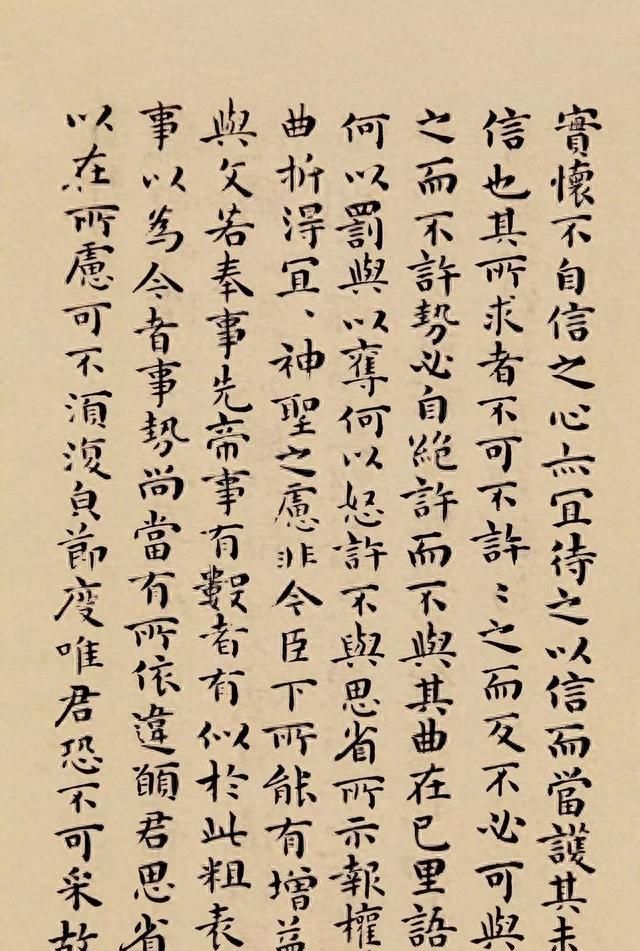 實懷不自信之心亦冝待之以信而當護其未
信也其所求者不可不許〻之而反不必可與
之而不許勢必自絶許而不與其曲在己里語
何以罰與以奪何以怒許不與思省所示報權
曲折得冝〻神聖之慮非今臣下所能有增益
與文若奉事先帝事有數者有似於此粗表
事以為今者事勢尚當有所依違願君思省
以在所慮可不須復皃節度唯君恐不可采故